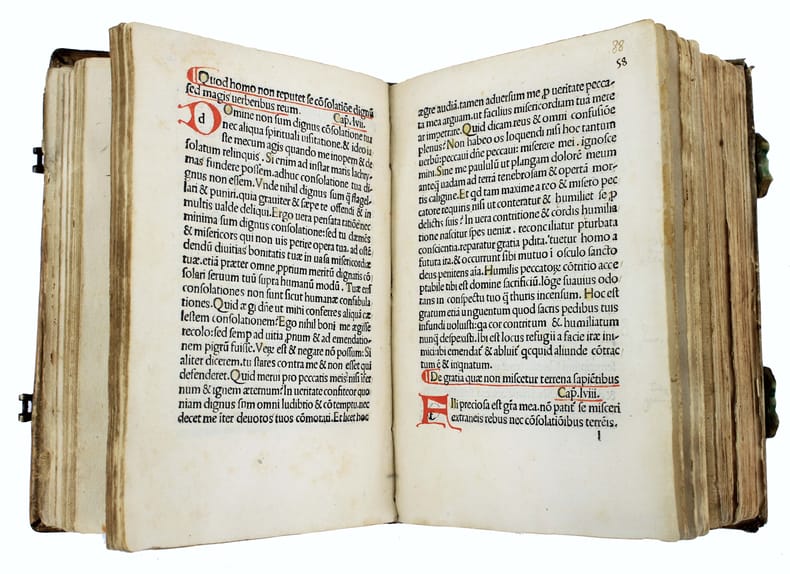 Quod homo non reputet se cõsolatiõe dignũ
sed magis uerberibus reum. Cap. lvii.
Domine non sum dignus cõsolatione tua
nec aliqua spirituali uisitatione. & ideo iu
ste mecum agis quando me inopem & de
solatum relinquis. Si enim ad instar maris lachry
mas fundere possem. adhuc consolatione tua di
gnus non essem. Vnde nihil dignus sum q̃ flagel
lari & puniri. quia grauiter & sæpe te offendi & in
multis ualde deliqui. Ergo uera pensata ratiõe nec
minima sum dignus consolatione: sed tu clæmẽs
& misericors qui non uis perire opera tua. ad ostẽ
dendũ diuitias bonitatis tuæ in uasa misericordiæ
tuæ. etiã præter omne, pprium meritũ dignaris cõ
solari seruum tuũ supra humanũ modũ. Tuæ em̃
consolationes non sunt sicut humanæ confabula
tiones. Quid æ gi dñe ut mihi conferres aliquã cæ
lestem consolationem? Ego nihil boni me ægisse
recolo: sed semp ad uitia, pnum & ad emendatio
nem pigrũ fuisse. Veꝛe est & negare nõ possum: Si
aliter dicerem. tu stares contra me & non esset qui
defenderet. Quid merui pro peccatis meis: nisi ifer
num & ignem æternum? In ueritate confiteor quo
niam dignus sum omni ludibrio & cõtemptu. nec
decet me iter deuotos tuos cõmorari. Et licet hoc
88
58
ægre audiã. tamen aduersum me, p ueritate pecca-
ta mea arguam. ut facilius misericordiam tuã mere
ar impetrare. Quid dicam reus & omni confusiõe
plenus? Non habeo os loquendi nisi hoc tantum
uerbũ: peccaui dñe peccaui: miserere mei. ignosce
mihi. Sine me paululũ ut plangam dolorẽ meum
anteq̃ uadam ad terrã tenebrosam & opertã mor-
tis caligine. Et qd tam maxime a reo & misero pec
catore requiris nisi ut conteratur & humiliet se, p
delictis suis? In uera contritione & cordis humilia
tione nascitur spes ueniæ. reconciliatur pturbata
conscientia. reparatur gratia pdita. tuetur homo a
futura ira. & occurrunt sibi mutuo i osculo sancto
deus penitens aĩa. Humilis peccatoꝝ cõtritio acce
ptabile tibi est domine sacrificiũ. lõge suauius odo
rans in conspectu tuo q̃ thuris incensum. Hoc est
gratum etiã unguentum quod sacris pedibus tuis
infundi uoluisti: qa cor contritum & humiliatum
nunq̃ despexisti. Ibi est locus refugii a facie iræ ini-
mici: ibi emendat̃ & abluit̃ qcquid aliunde cõtrac
tum ẽ & inqnatum.
De gratia quæ non miscetur terrena sapiẽtibus
Cap. lviii.
Fili preciosa est gr̃a mea. nõ patit̃ se misceri
extraneis rebus nec cõsolatiõibus terrẽis.
l